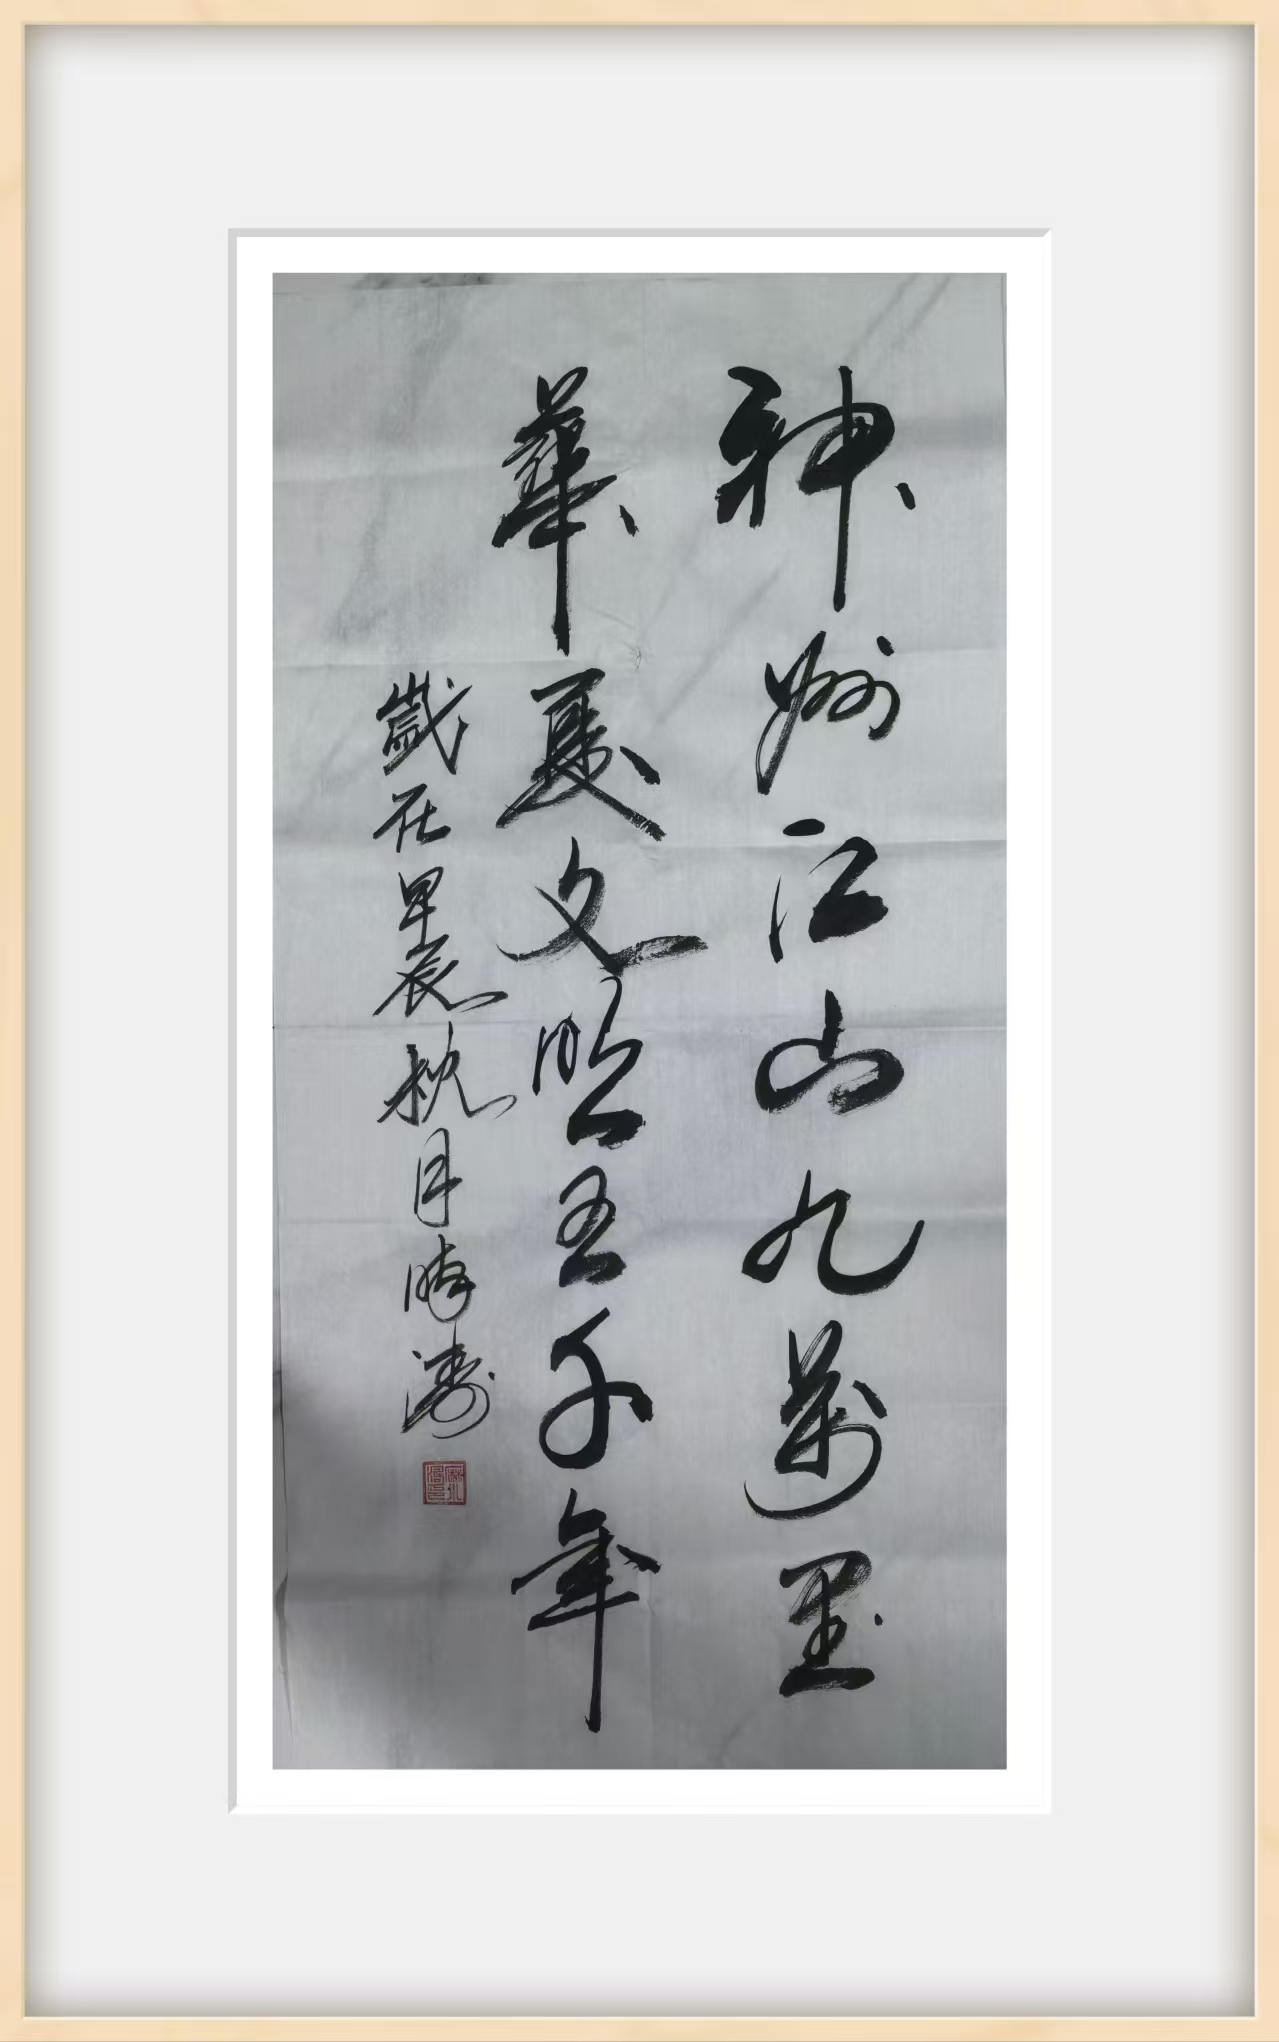 神州江山九萬里
華夏文明五千年
歲在甲辰秋月晴濤